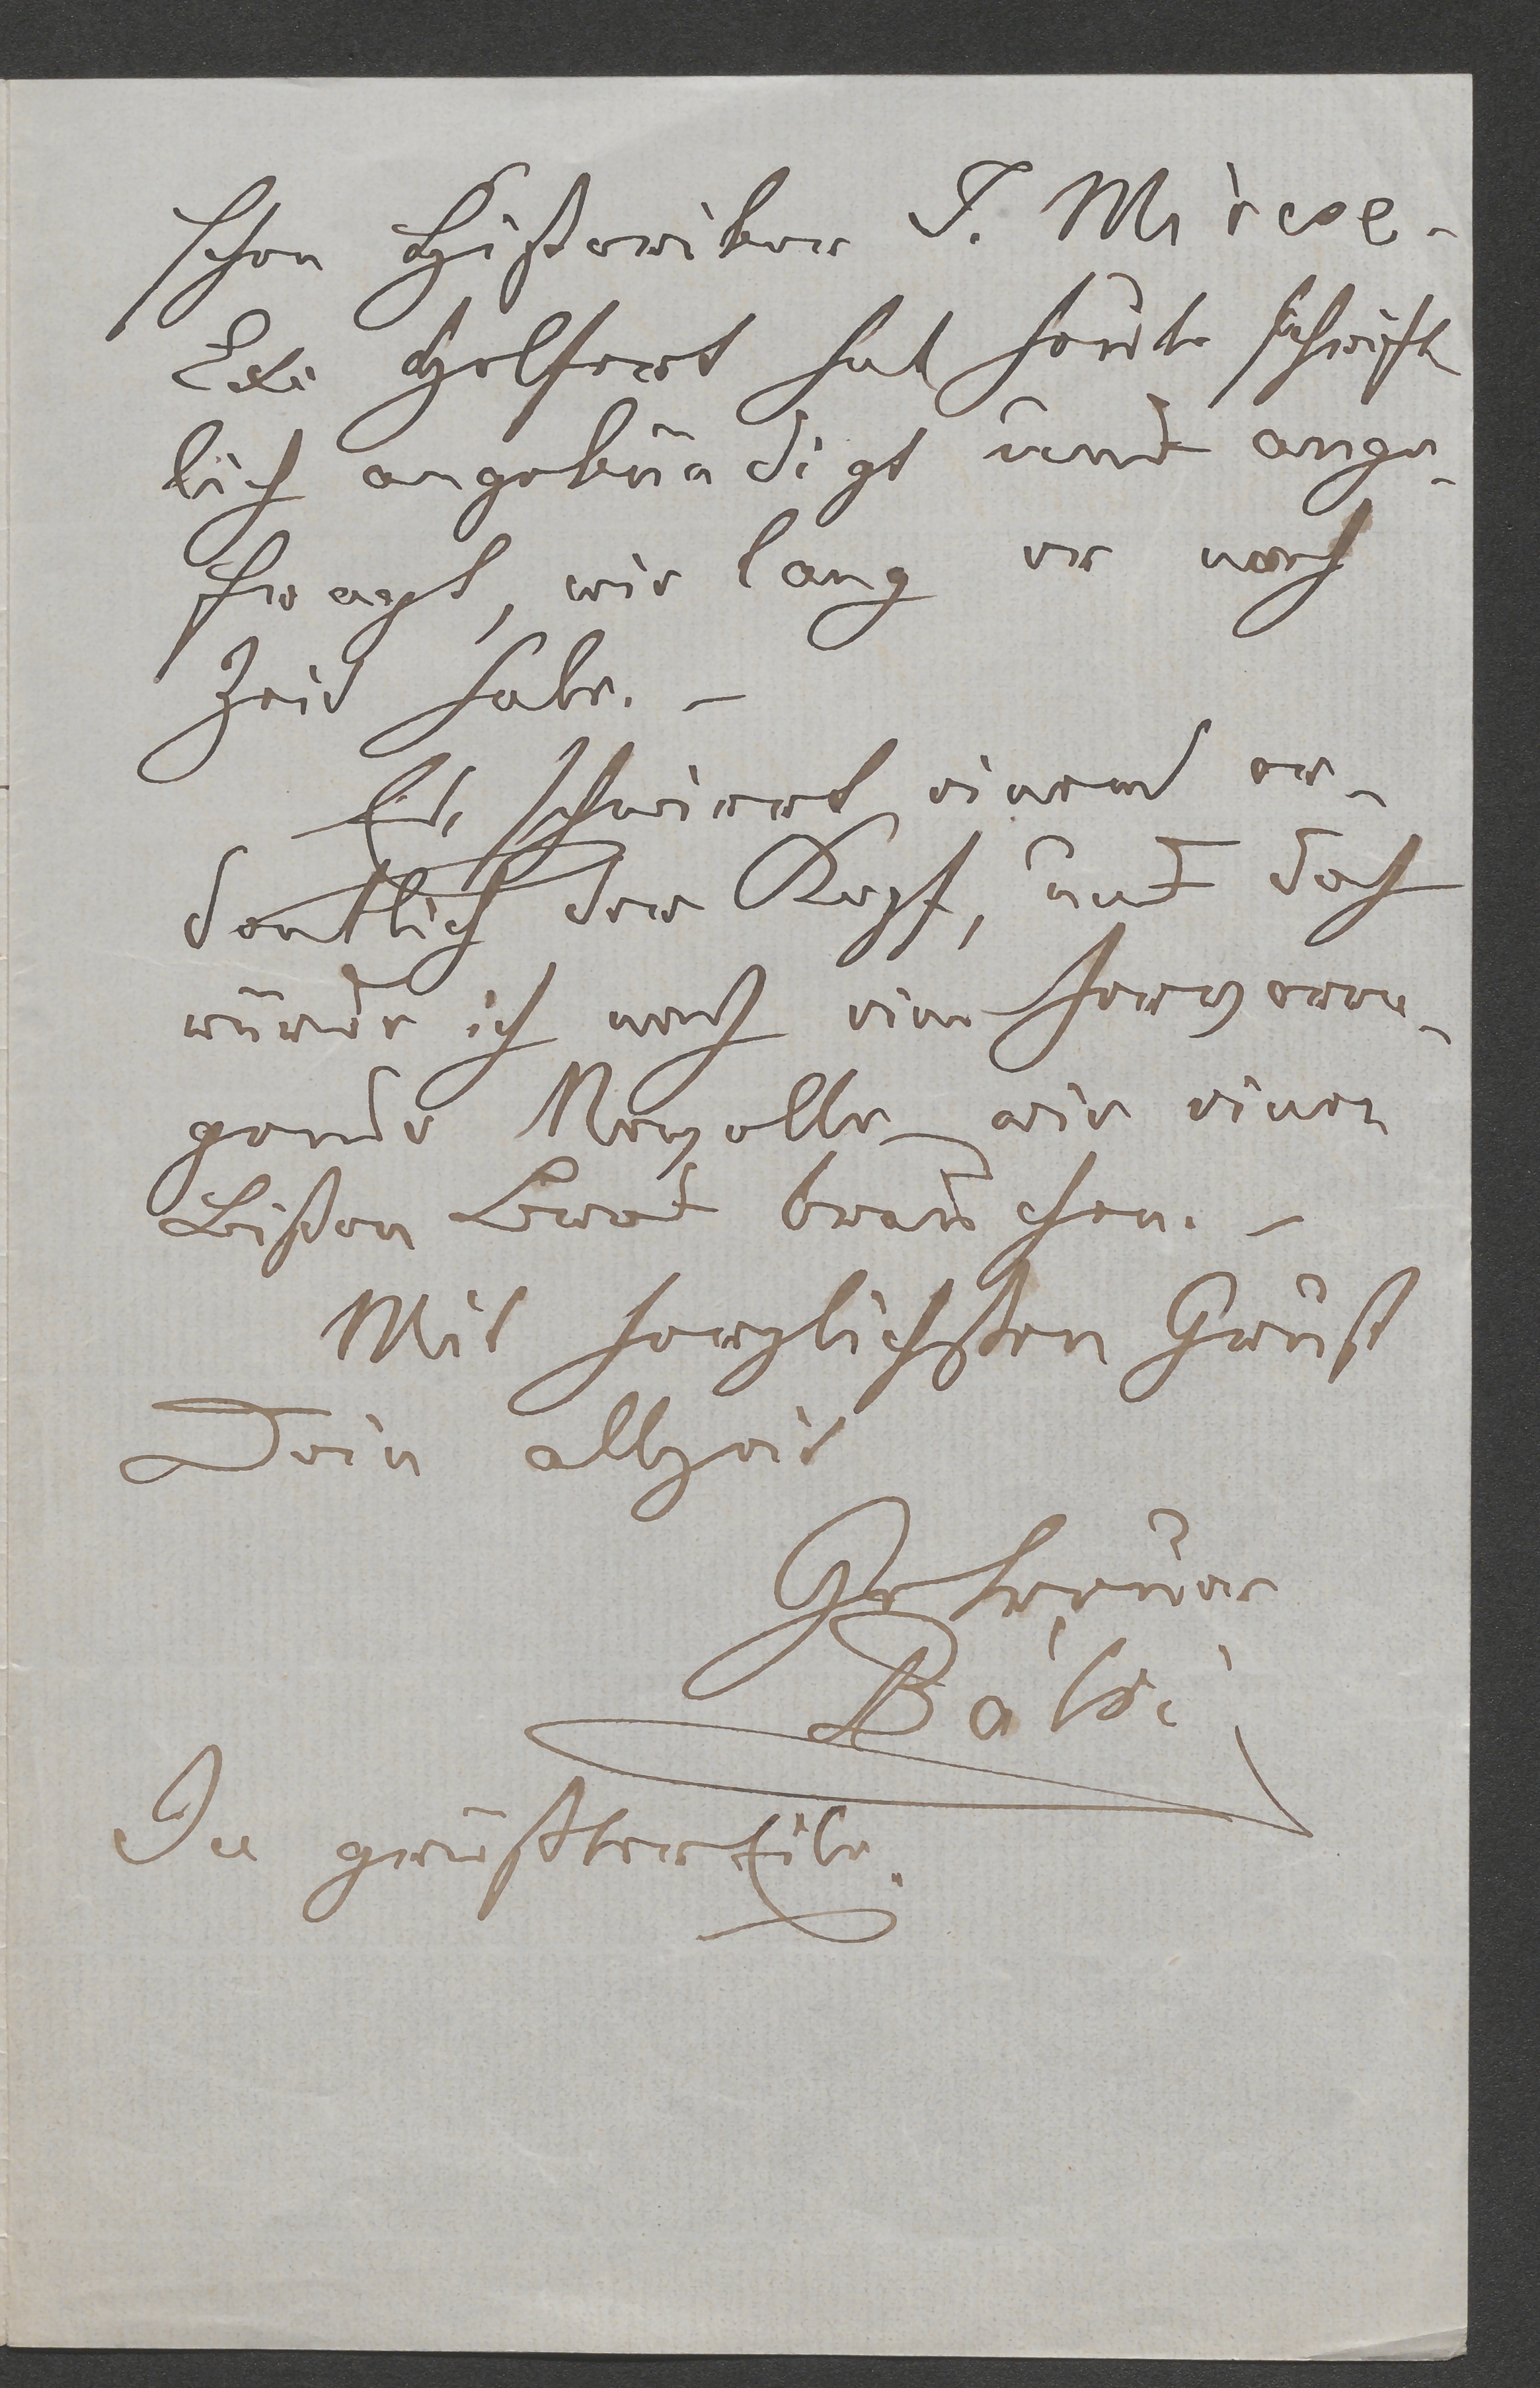 schen Historiker T. Mircse.-
Exc Helfert hat heute schrift
lich angekündigt und ange-
fragt, wie lang er noch
Zeit habe. -
Es schwirrt einem or-
dentlich der Kopf, und doch
würde ich noch eine hervorra-
gende Novelle wie einen
Bissen Brod brauchen. -
Mit herzlichsten Gruß
Dein allzeit
Getreuer
Báldi
In größter Eile.